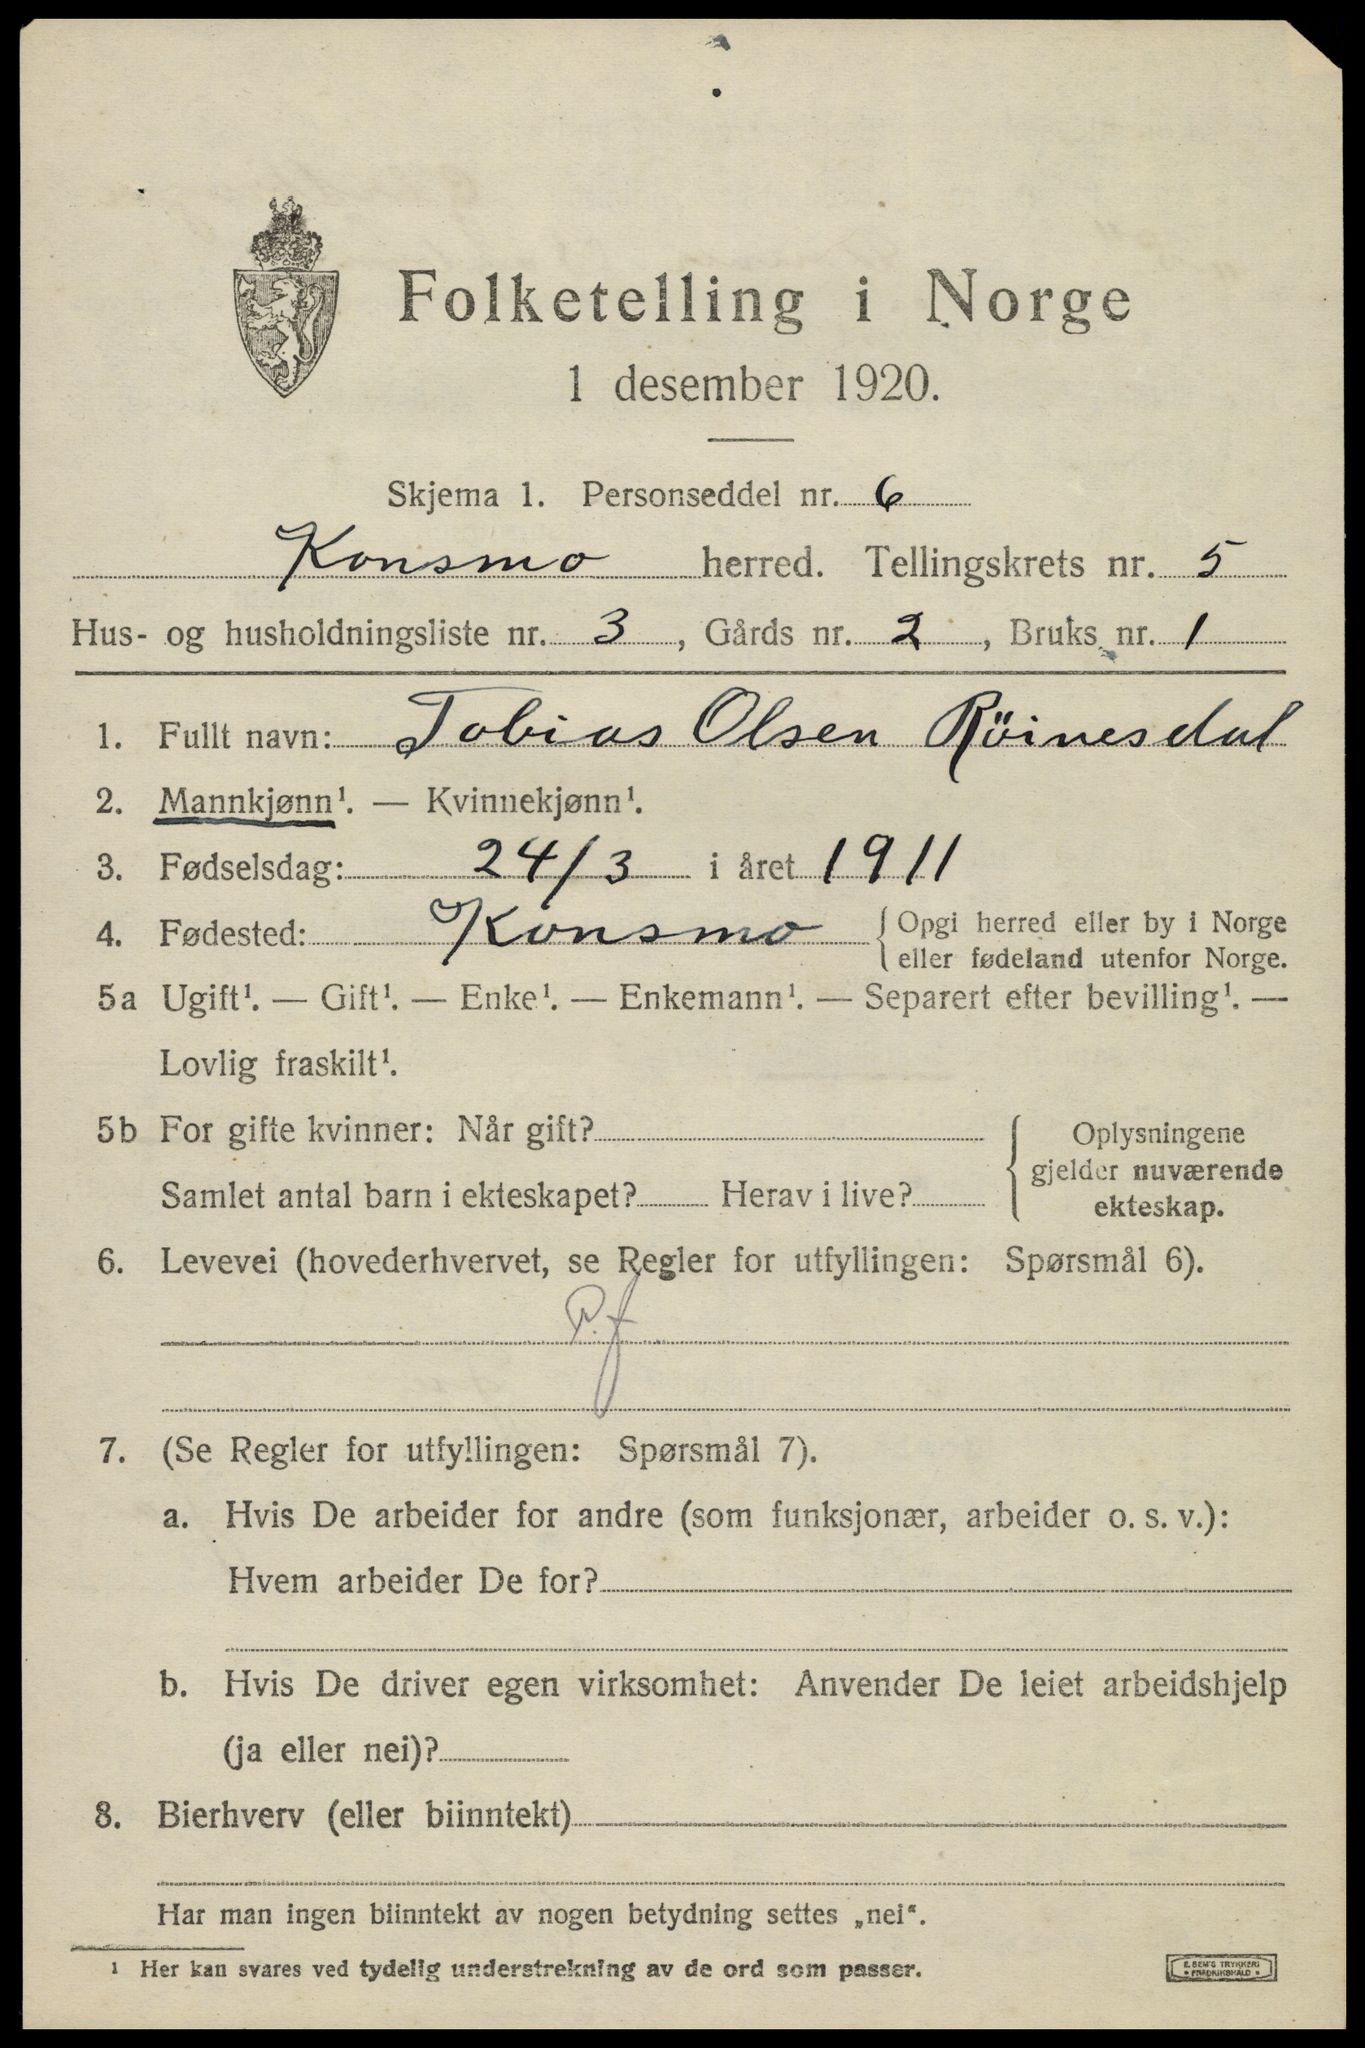 Folketelling i Norge
1 desember 1920.
Skjema 1. Personseddel nr. 6
Konsmo herred. Tellingskrets nr. 5
Hus- og husholdningsliste nr. 3, Gårds nr. 2, Bruks nr. 1
1. Fullt navn: Tobias Olsen Röinesdal
2. Mannkjønn¹. — Kvinnekjønn¹.
3. Fødselsdag: 24/3 i året 1911
4. Fødested: Konsmo { Opgi herred eller by i Norge
eller fødeland utenfor Norge.
5a Ugift¹. — Gift¹. — Enke¹. — Enkemann¹. — Separert efter bevilling¹. —
Lovlig fraskilt¹.
5b For gifte kvinner: Når gift?
Samlet antal barn i ekteskapet? Herav i live?
Oplysningene
gjelder nuværende
ekteskap.
6. Levevei (hovederhvervet, se Regler for utfyllingen: Spørsmål 6).
P.f
7. (Se Regler for utfyllingen: Spørsmål 7).
a. Hvis De arbeider for andre (som funksjonær, arbeider o. s. v.):
Hvem arbeider De for?
b. Hvis De driver egen virksomhet: Anvender De leiet arbeidshjelp
(ja eller nei)?
8. Bierhverv (eller biinntekt)
Har man ingen biinntekt av nogen betydning settes „nei“.
¹ Her kan svares ved tydelig understrekning av de ord som passer.
E. SEM'S TRYKKERI
• FREDRIKSHALD •